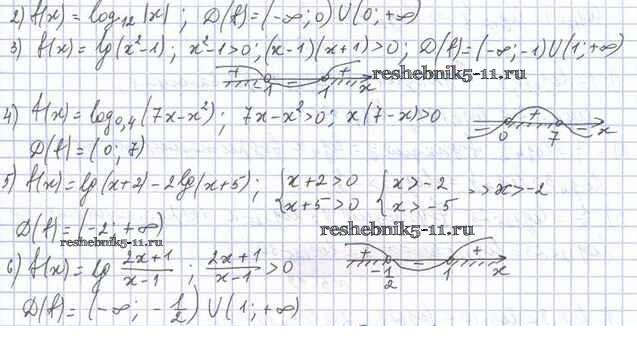 2) f(x) = log₁₂|x| ; D(f) = (-∞; 0) U (0; +∞)
3) f(x) = lg(x²-1) ; x²-1>0; (x-1)(x+1)>0; D(f) = (-∞; -1) U (1; +∞)
+ - + -1 1 x
reshebnik5-11.ru
4) f(x) = log₀,₄(7x-x²) ; 7x-x²>0; x(7-x)>0
- + - 0 7 x
D(f) = (0; 7)
5) f(x) = lg(x+2) - 2lg(x+5) ; { x+2>0 { x>-2 => x>-2
x+5>0 x>-5
D(f) = (-2; +∞)
reshebnik5-11.ru
reshebnik5-11.ru
6) f(x) = lg (2x+1)/(x-1) ; (2x+1)/(x-1) > 0
+ - + -1/2 1 x
D(f) = (-∞; -1/2) U (1; +∞)